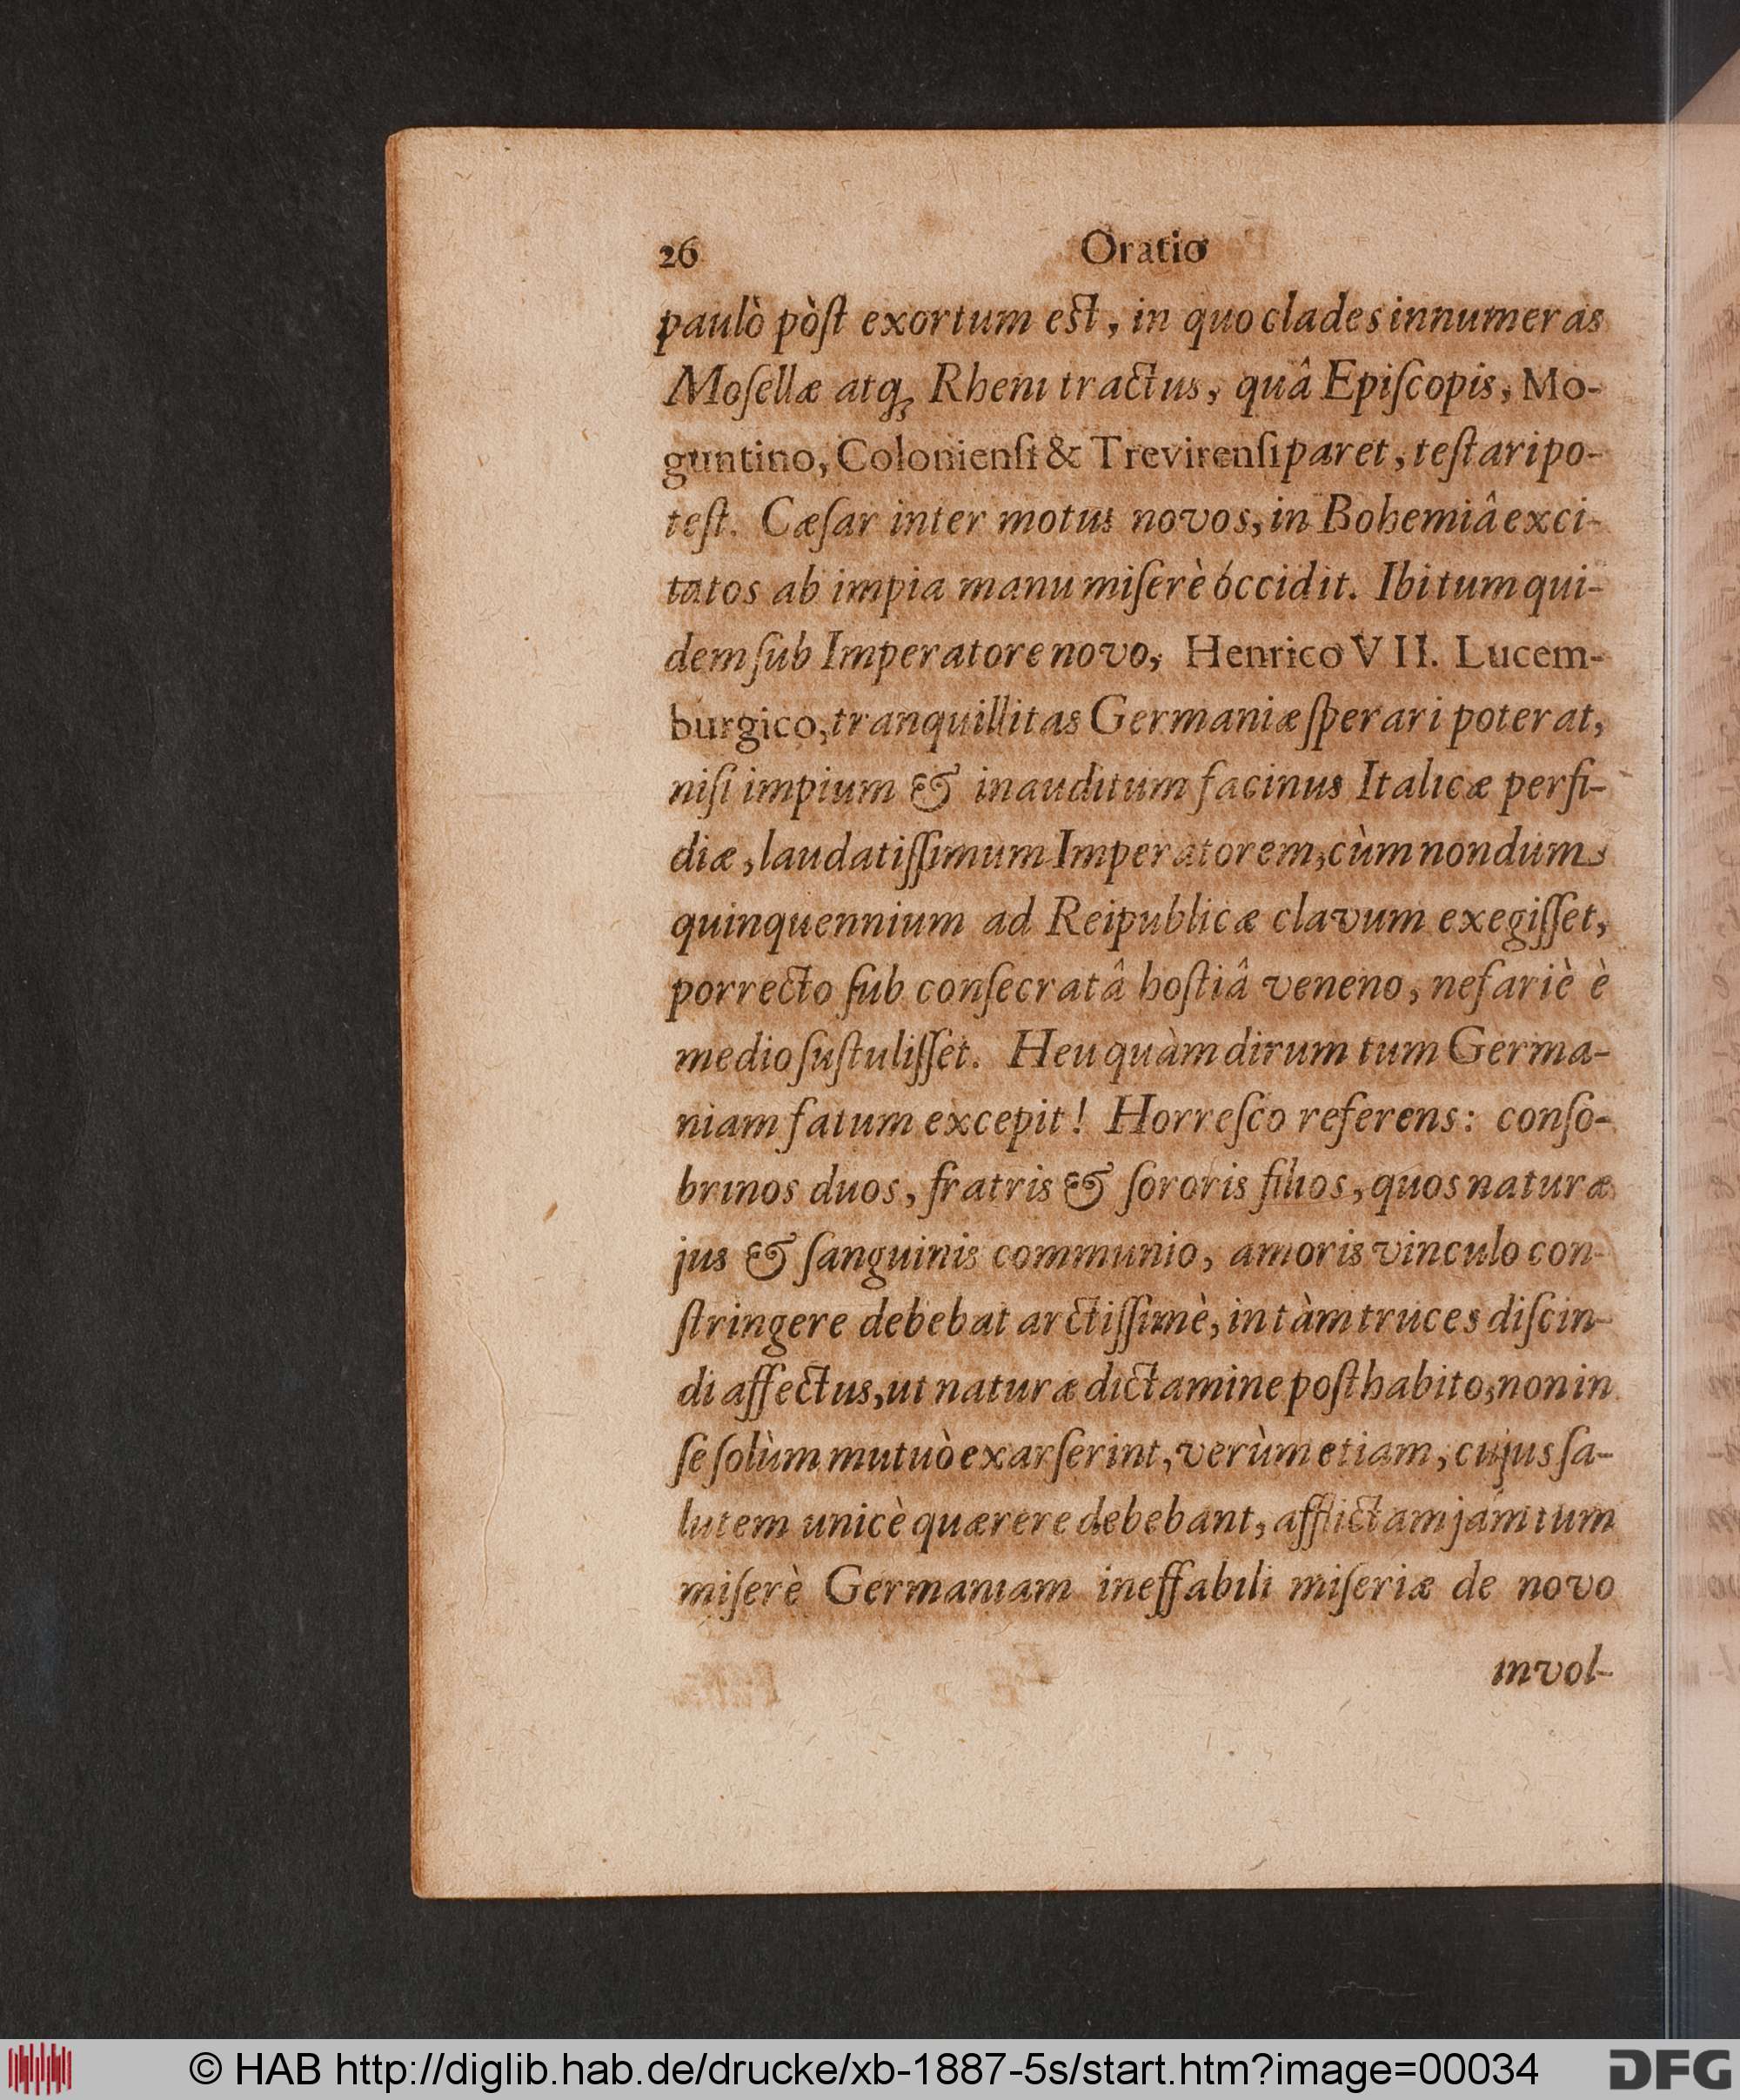 26 Oratio
paulò pòſt exortum eſt, in quo clades innumeras
Moſellæ atq́; Rheni tractus, quâ Epiſcopis, Mo-
guntino, Colonienſi & Trevirenſi paret, teſtari po-
teſt. Cæſar inter motus novos, in Bohemiâ exci-
tatos ab impia manu miſerè óccidit. Ibi tum qui-
dem ſub Imperatore novo, Henrico VII. Lucem-
burgico, tranquillitas Germaniæ ſperari poterat,
niſi impium & inauditum facinus Italicæ perfi-
diæ, laudatiſſimum Imperatorem, cùm nondum
quinquennium ad Reipublicæ clavum exegiſſet,
porrecto ſub conſecratâ hoſtiâ veneno, nefariè è
medio ſuſtuliſſet. Heu quàm dirum tum Germa-
niam fatum excepit! Horreſco referens: conſo-
brinos duos, fratris & ſororis filios, quos naturæ
jus & ſanguinis communio, amoris vinculo con-
ſtringere debebat arctiſſimè, in tàm truces diſcin-
di affectus, ut naturæ dictamine poſthabito, non in
ſe ſolùm mutuò exarſerint, verùm etiam, cujus ſa-
lutem unicè quærere debebant, afflictam jam tum
miſerè Germaniam ineffabili miſeriæ de novo
invol-
© HAB http://diglib.hab.de/drucke/xb-1887-5s/start.htm?image=00034
DFG